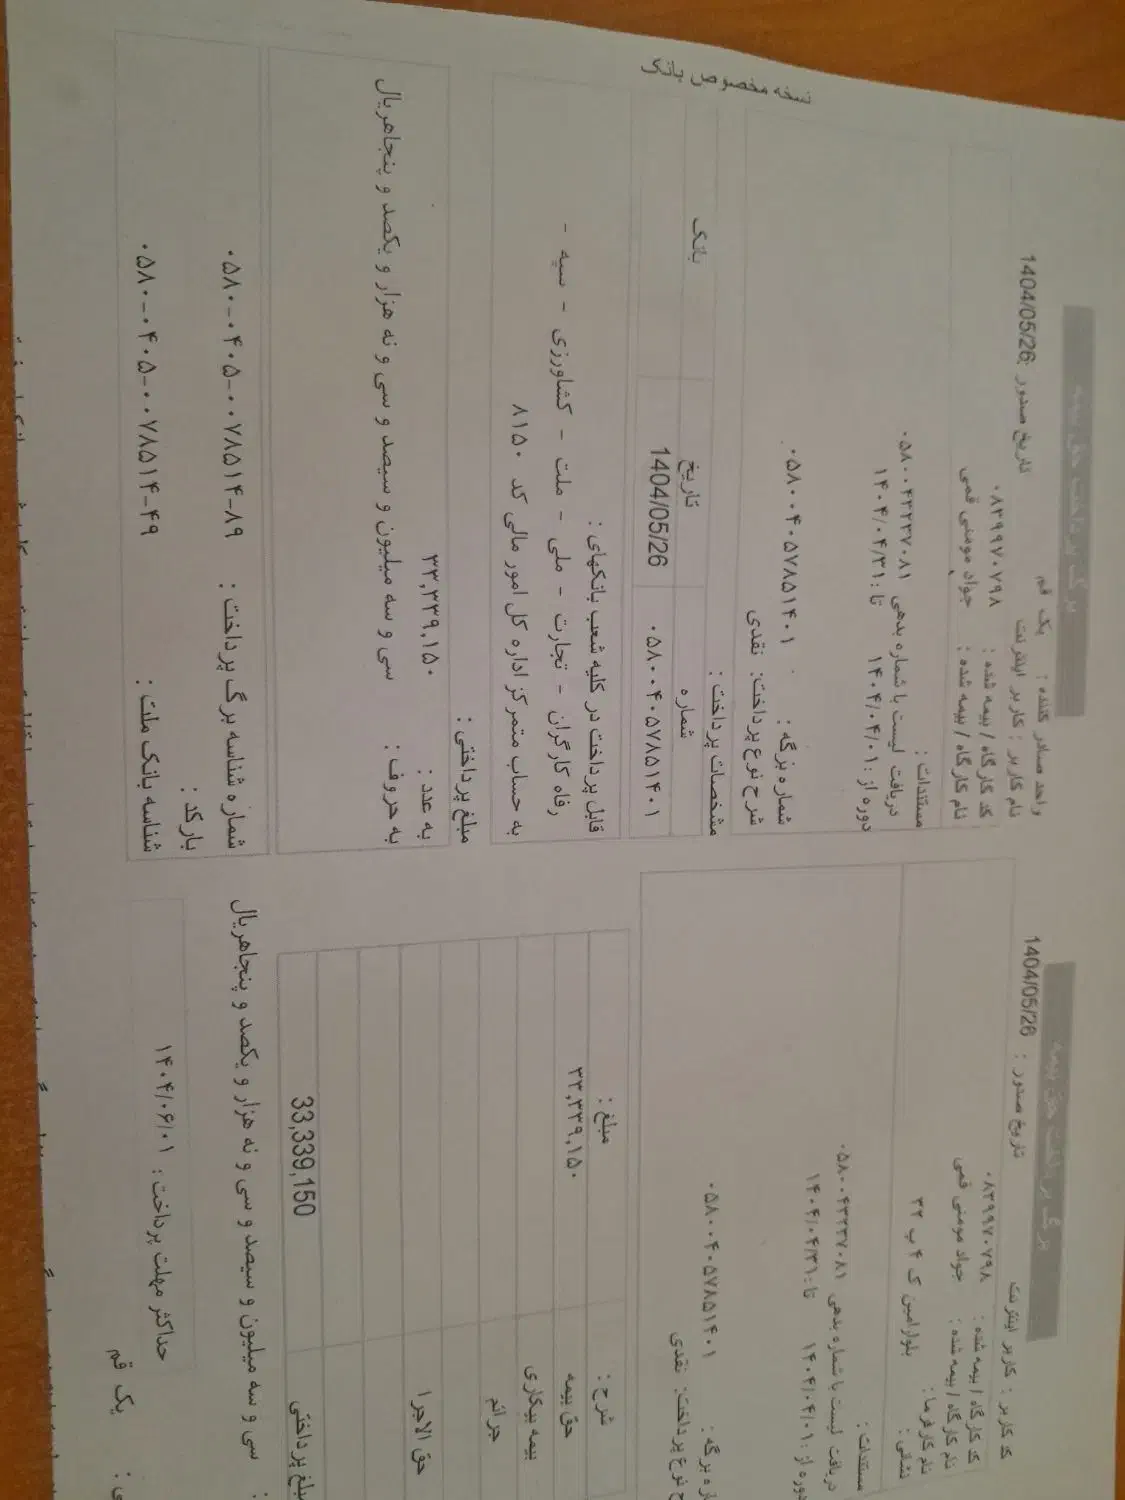 نسخه مخصوص بانک
برگ پرداخت حق بیمه
تاریخ صدور : 1404/05/26
واحد صادر کننده : یک قم
نام کاربر : کاربر اینترنت
کد کارگاه / بیمه شده : ۰۸۳۹۹۷۰۷۹۸
نام کارگاه / بیمه شده : جواد مومنی قمی
مستندات :
دریافت لیست با شماره بدهی ۰۵۸۰۰۴۳۲۳۷۰۸۱
دوره از : ۱۴۰۴/۰۴/۰۱ تا : ۱۴۰۴/۰۴/۳۱
شماره برگه : ۰۵۸۰۰۴۰۵۷۸۵۱۴۰۱
شرح نوع پرداخت: نقدی
مشخصات پرداخت :
شماره تاریخ بانک
۰۵۸۰۰۴۰۵۷۸۵۱۴۰۱ 1404/05/26
قابل پرداخت در کلیه شعب بانکهای :
رفاه کارگران - تجارت - ملی - ملت - کشاورزی - سپه -
به حساب متمرکز اداره کل امور مالی کد ۸۱۵۰
مبلغ پرداختی :
به عدد : ۳۳,۳۳۹,۱۵۰
به حروف : سی و سه میلیون و سیصد و سی و نه هزار و یکصد و پنجاهریال
شماره شناسه برگ پرداخت : ۰۵۸۰-۰۴۰۵-۰۰۷۸۵۱۴-۸۹
بارکد :
شناسه بانک ملت : ۰۵۸۰-۰۴۰۵-۰۰۷۸۵۱۴-۴۹
برگ پرداخت حق بیمه
تاریخ صدور : 1404/05/26
کد کاربر : کاربر اینترنت
کد کارگاه / بیمه شده : ۰۸۳۹۹۷۰۷۹۸
نام کارگاه / بیمه شده : جواد مومنی قمی
نام کارفرما :
نشانی : بلوارامین ک ۴ پ ۳۲
مستندات :
دریافت لیست با شماره بدهی ۰۵۸۰۰۴۳۲۳۷۰۸۱
دوره از : ۱۴۰۴/۰۴/۰۱ تا : ۱۴۰۴/۰۴/۳۱
برگه : ۰۵۸۰۰۴۰۵۷۸۵۱۴۰۱
نوع پرداخت: نقدی
شرح : مبلغ :
حق بیمه ۳۳,۳۳۹,۱۵۰
بیمه بیکاری
جرائم
حق الاجرا
مبلغ پرداختی 33,339,150
سی و سه میلیون و سیصد و سی و نه هزار و یکصد و پنجاهریال
حداکثر مهلت پرداخت : ۱۴۰۴/۰۶/۰۱
یک قم